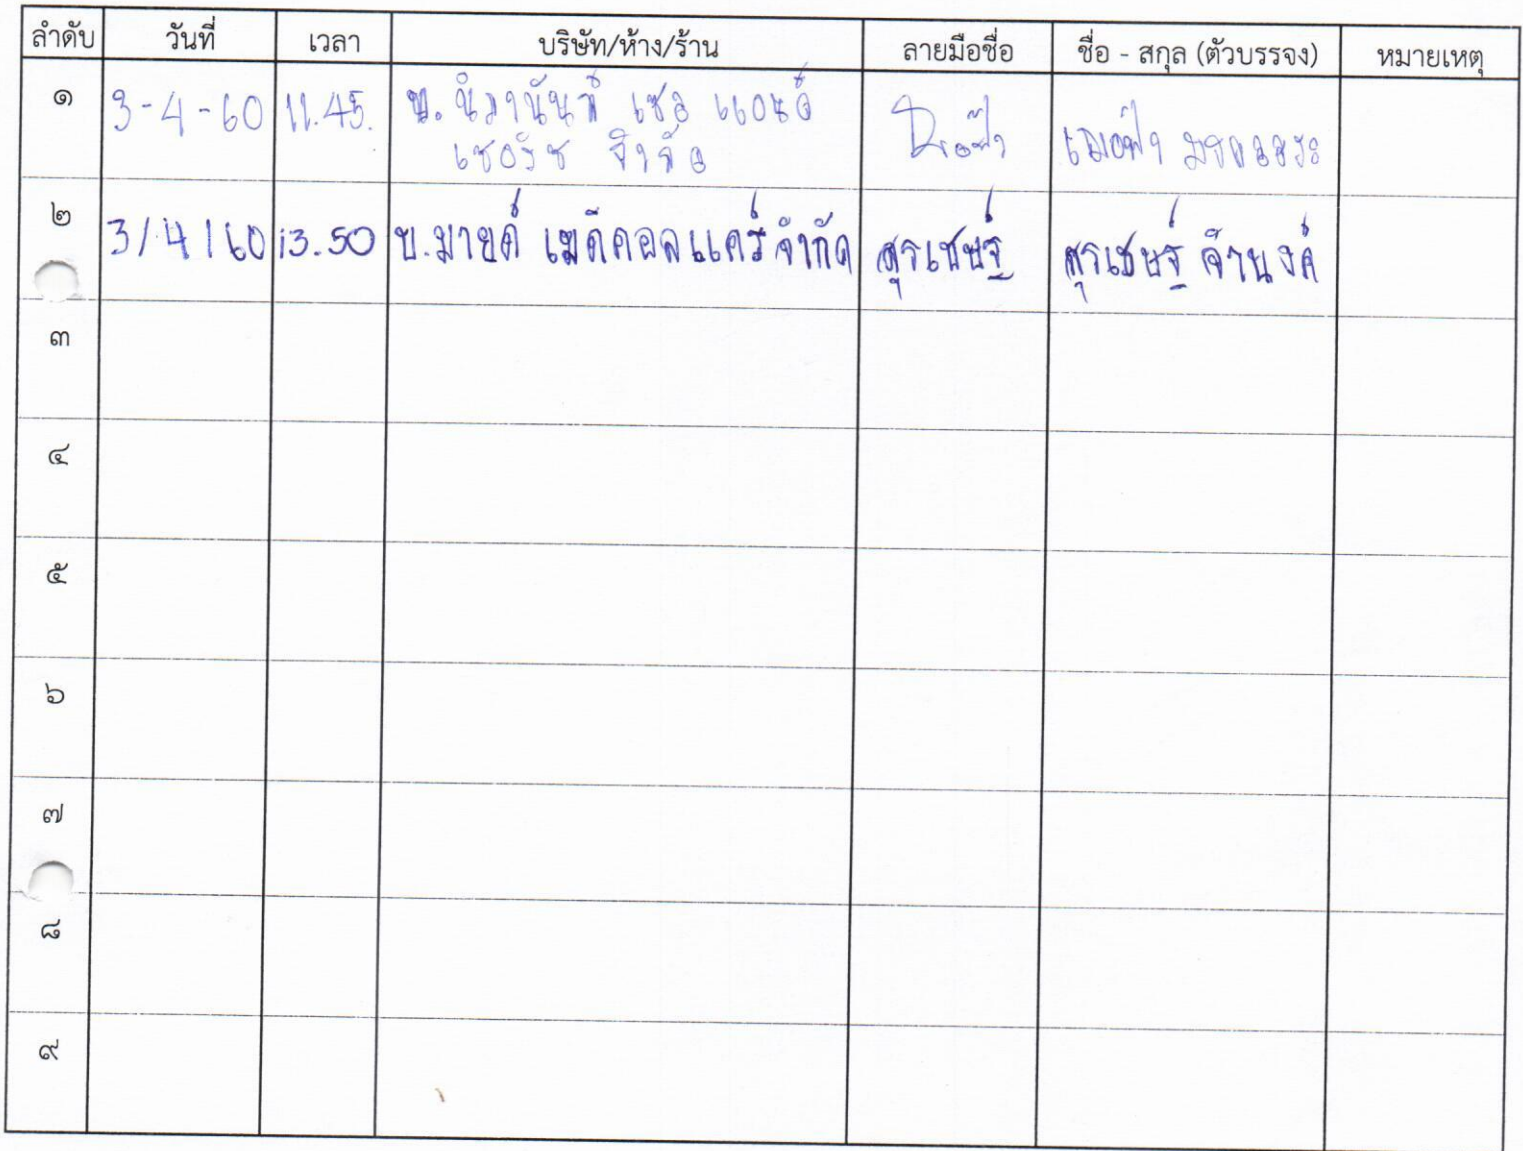 ลำดับ วันที่ เวลา บริษัท/ห้าง/ร้าน ลายมือชื่อ ชื่อ - สกุล (ตัวบรรจง) หมายเหตุ
๑ 3-4-60 11.45. บ. นิภานันท์ เซล แอนด์
เซอร์วิช จำกัด
๒ 3/4/60 13.50 บ.มายด์ เมดิคอลแคร์ จำกัด สุรเชษฐ์ สุรเชษฐ์ จำนงค์
๓
๔
๕
๖
๗
๘
๙